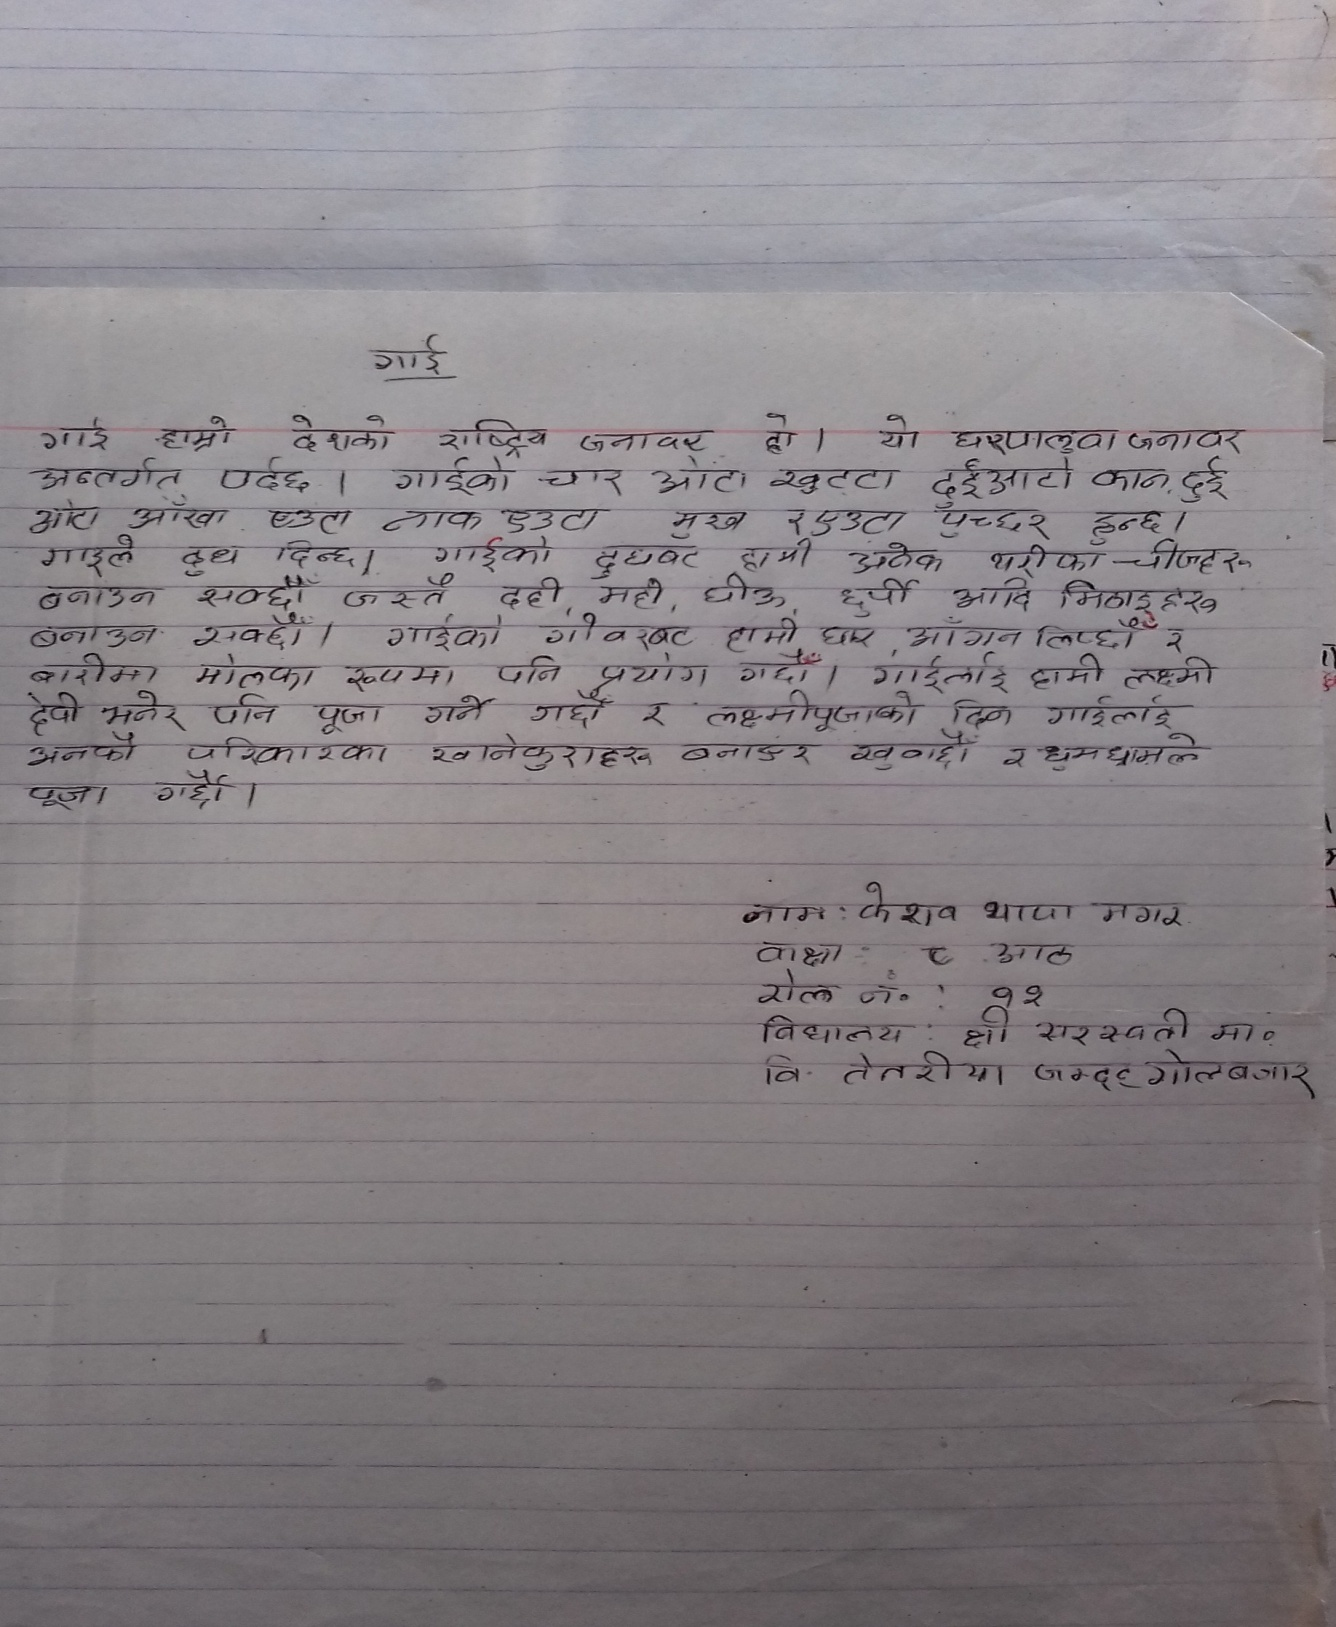 गाई
गाई हाम्रो देशको राष्ट्रिय जनावर हो। यो घरपालुवा जनावर
अन्तर्गत पर्दछ। गाईको चार ओटा खुट्टा दुईआटो कान, दुई
ओटा आँखा एउटा नाक एउटा मुख र एउटा पुच्छर हुन्छ।
गाइले दुध दिन्छ। गाईको दुधबट हामी अनेक थरीका चीजहरू
बनाउन सक्छौँ जस्तै दही, मही, घीऊ, छुर्पी आदि मिठाइहरू
बनाउन सक्छौँ। गाईको गोवरबट हामी घर, आँगन लिप्छौँ र
बारीमा मोलका रूपमा पनि प्रयोग गर्छौँ। गाईलाई हामी लक्ष्मी
देवी भनेर पनि पूजा गर्ने गर्छौँ र लक्ष्मीपूजाको दिन गाईलाई
अनकौ परिकारका खानेकुराहरू बनाइर खुवाछौँ र धुमधामले
पूजा गर्छौँ।
नाम: केशव थापा मगर
कक्षा: ८ आठ
रोल नं.: १२
विधालय: श्री सरस्वती मा.
वि. तेतरीया जम्दह गोलबजार